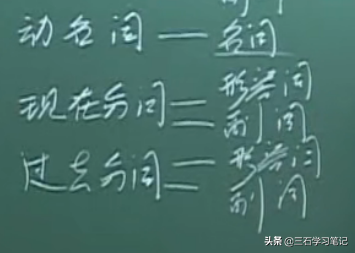 动名词 — 名词
现在分词 = 形容词
副词
过去分词 = 形容词
副词
头条 @三石学习笔记